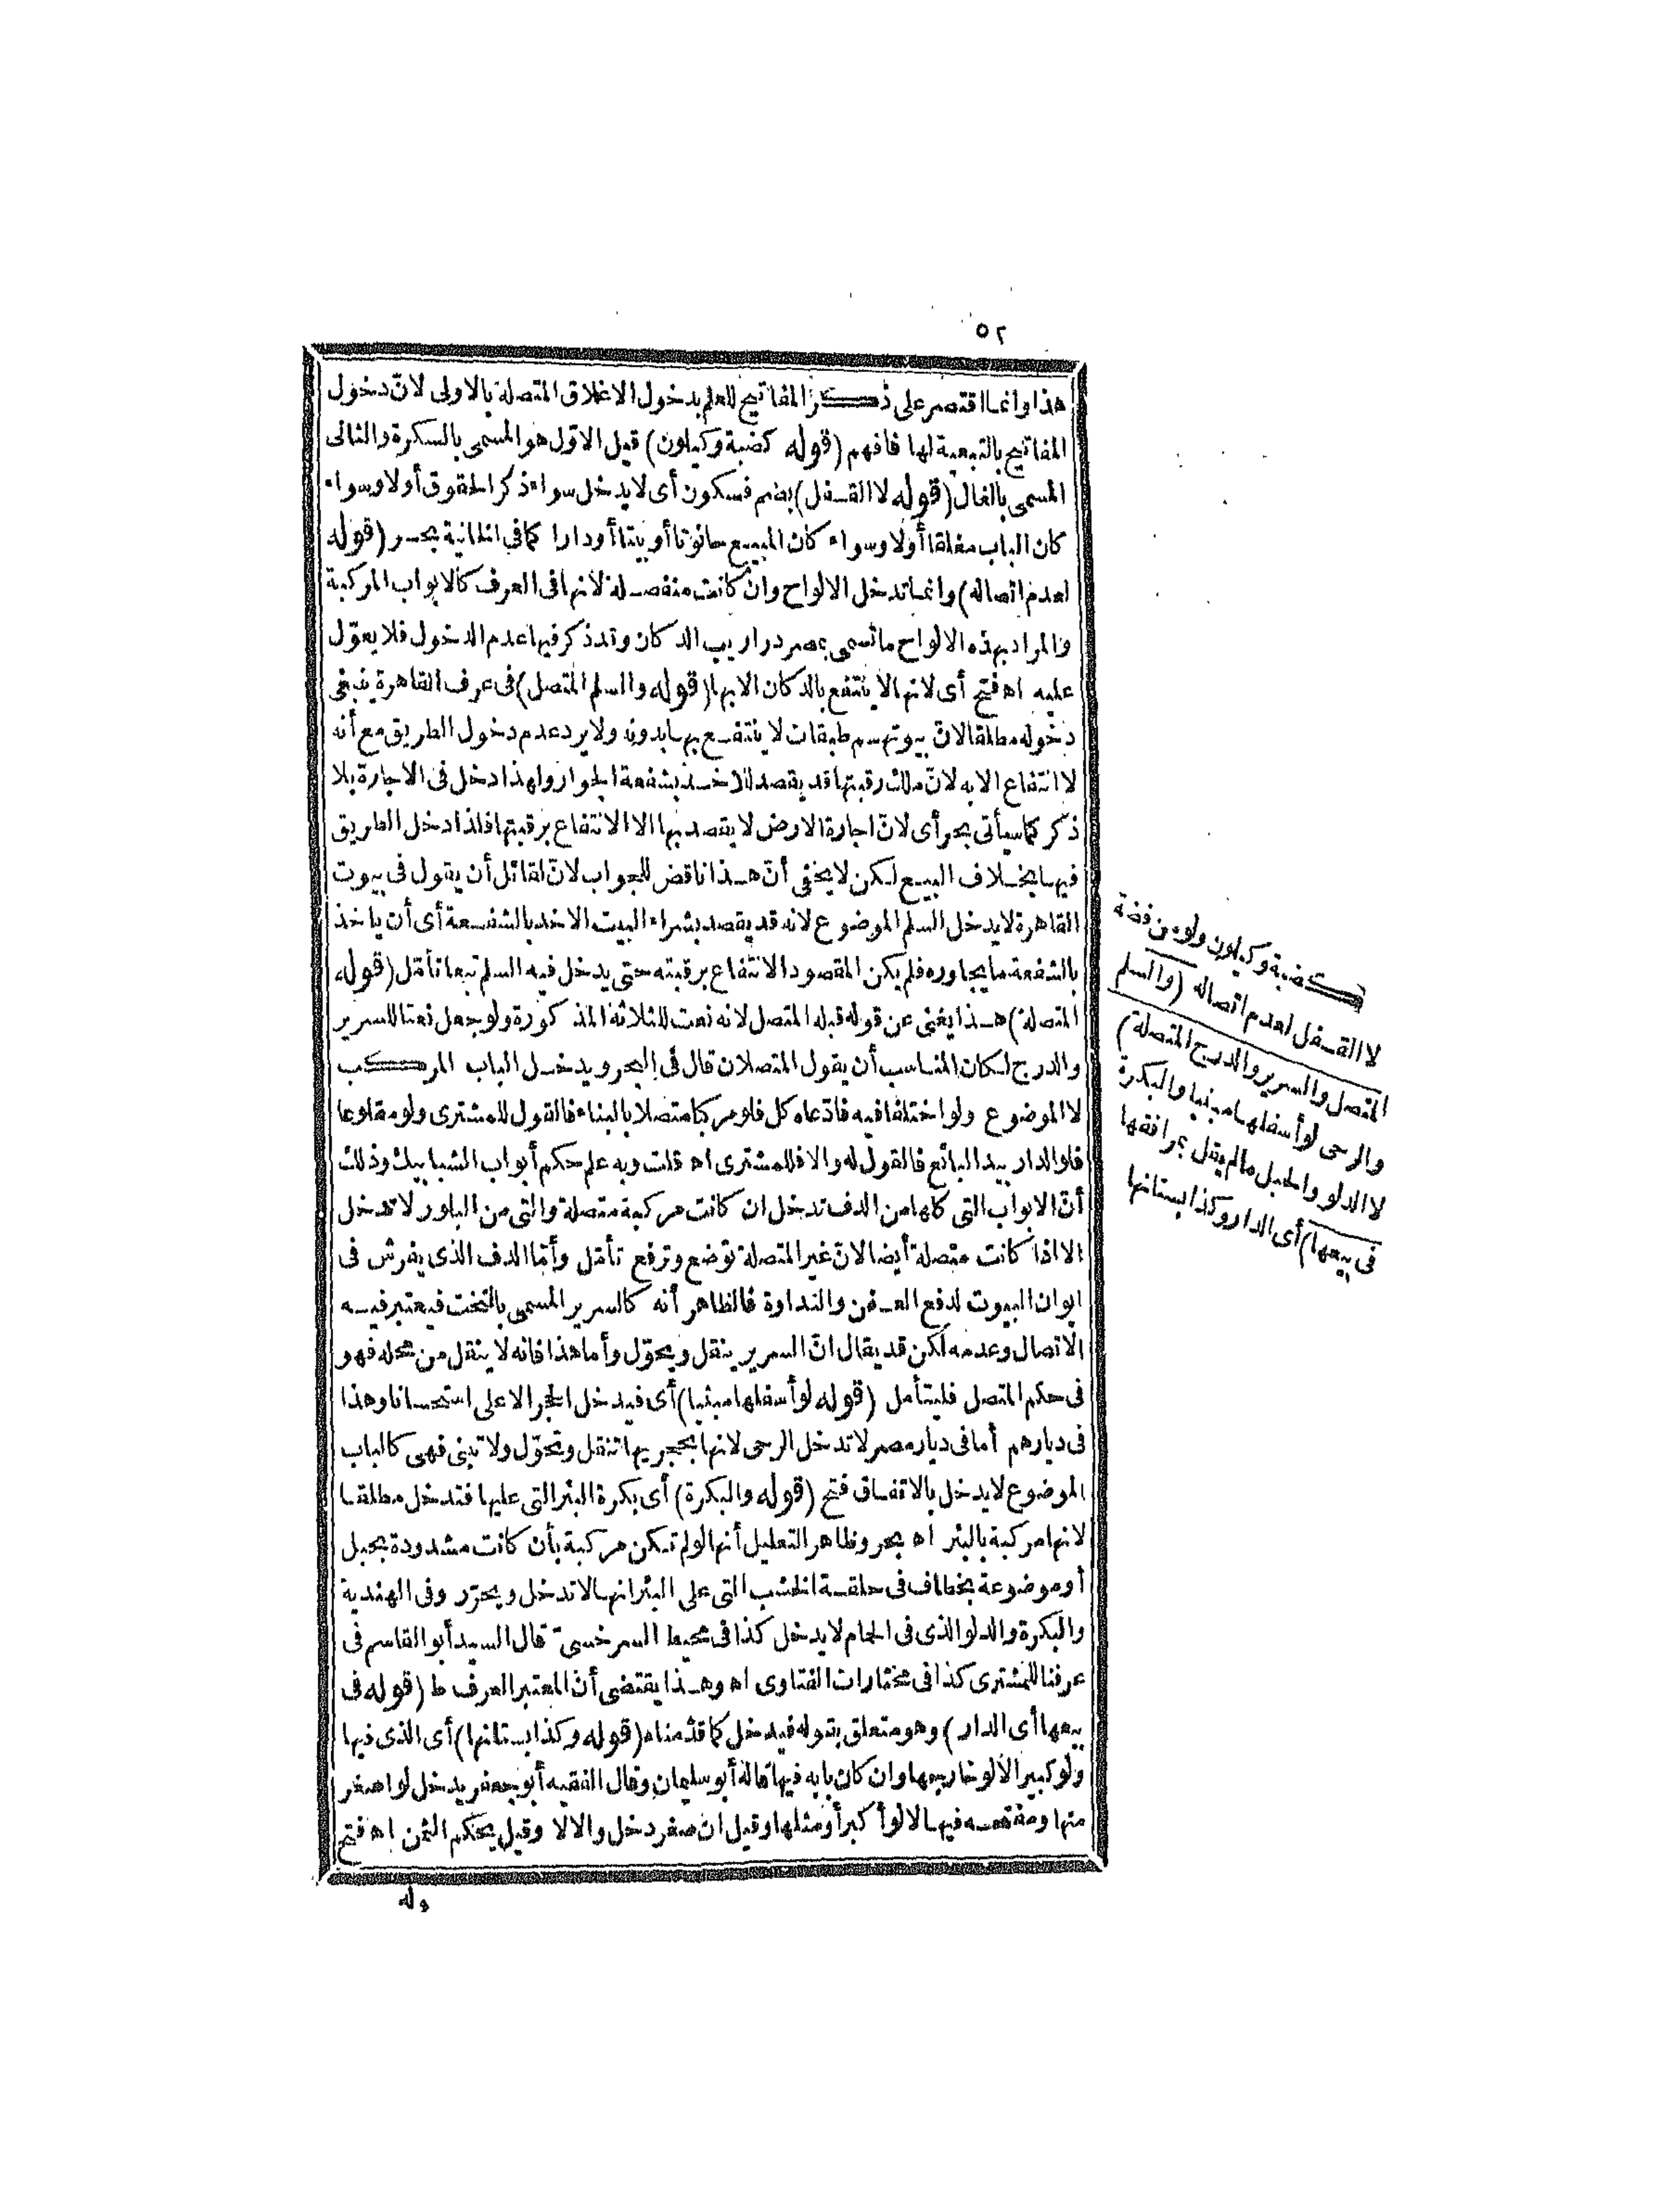 ٥٢
هذا وانما اقتصر على ذكر المفاتيح للعلم بدخول الاغلاق المتصلة بالاولى لانّ دخول
المفاتيح بالتبعية لها فافهم (قوله كضبة وكيلون) قيل الاوّل هو المسمى بالسكرة والثانى
المسمى بالغال (قوله لا القفل) بضم فسكون أى لا يدخل سواء ذكر الحقوق أولا وسواء
كان الباب مغلقا أولا وسواء كان المبيع حانوتا أو بيتا أودارا كما فى الخانية بحر (قوله
لعدم اتصاله) وانما تدخل الالواح وان كانت منفصلة لانها فى العرف كالابواب المركبة
والمراد بهذه الالواح ما تسمى بمصر دراريب الدكان وقد ذكر فيها عدم الدخول فلا يعوّل
عليه اه فتح أى لانها لا ينتفع بالدكان الا بها (قوله والسلم المتصل) فى عرف القاهرة ينبغى
دخوله مطلقا لانّ بيوتهم طبقات لا ينتفع بها بدونه ولا يرد عدم دخول الطريق مع أنه
لا انتفاع الا به لانّ ملك رقبتها قد يقصد للاخذ بشفعة الجوار ولهذا دخل فى الاجارة بلا
ذكر كما سيأتى بحر أى لانّ اجارة الارض لا يقصد بها الا الانتفاع برقبتها فلذا دخل الطريق
فيها بخلاف البيع لكن لا يخفى أنّ هذا ناقض للجواب لانّ لقائل أن يقول فى بيوت
القاهرة لا يدخل السلم الموضوع لانه قد يقصد بشراء البيت الاخذ بالشفعة أى أن ياخذ
بالشفعة ما يجاوره فلم يكن المقصود الانتفاع برقبته حتى يدخل فيه السلم تبعا تأمّل (قوله
المتصلة) هذا يغنى عن قوله قبله المتصل لانه نعت للثلاثة المذكورة ولو جعل نعتا للسرير
والدرج لكان المناسب أن يقول المتصلان قال فى البحر ويدخل الباب المركب
لا الموضوع ولو اختلفا فيه فادّعاه كل فلو مركبا متصلا بالبناء فالقول للمشترى ولو مقلوعا
فلو الدار بيد البائع فالقول له والا فللمشترى اه قلت وبه علم حكم أبواب الشبابيك وذلك
أنّ الابواب التى كلها من الدف تدخل ان كانت مركبة متصلة والتى من البلور لا تدخل
الا اذا كانت متصلة أيضا لانّ غير المتصلة توضع وترفع تأمّل وأمّا الدف الذى يفرش فى
ايوان البيوت لدفع العفن والنداوة فالظاهر أنه كالسرير المسمى بالتخت فيعتبر فيه
الاتصال وعدمه لكن قد يقال انّ السرير ينقل ويحوّل وأما هذا فانه لا ينقل من محله فهو
فى حكم المتصل فليتأمل (قوله لو أسفلها مبنيا) أى فيدخل الحجر الاعلى استحسانا وهذا
فى ديارهم أما فى ديار مصر لا تدخل الرحى لانها بحجريها تنقل وتحوّل ولا تبنى فهى كالباب
الموضوع لا يدخل بالاتفاق فتح (قوله والبكرة) أى بكرة البئر التى عليها فتدخل مطلقا
لانها مركبة بالبئر اه بحر وظاهر التعليل أنها لو لم تكن مركبة بأن كانت مشدودة بحبل
أو موضوعة بخطاف فى حلقة الخشب التى على البئر انها لا تدخل ويحرّر وفى الهندية
والبكرة والدلو الذى فى الحمام لا يدخل كذا فى محيط السرخسىّ قال السيد أبو القاسم فى
عرفنا للمشترى كذا فى مختارات الفتاوى اه وهذا يقتضى أنّ المعتبر العرف ط (قوله فى
بيعها أى الدار) وهو متعلق بقوله فيدخل كما قدّمناه (قوله وكذا بستانها) أى الذى فيها
ولو كبيرا لا لو خارجها وان كان بابه فيها قاله أبو سليمان وقال الفقيه أبو جعفر يدخل لو اصغر
منها ومفتحه فيها لا لو أكبر أو مثلها وقيل ان صغر دخل والا لا وقيل يحكم الثمن اه فتح
وله
كضبة وكيلون ولو من فضة
لا القفل لعدم اتصاله (والسلم
المتصل والسرير والدرج المتصلة)
والرحى لو أسفلها مبنيا والبكرة
لا الدلو والحبل ما لم يقل بمرافقها
فى بيعها) أى الدار وكذا بستانها